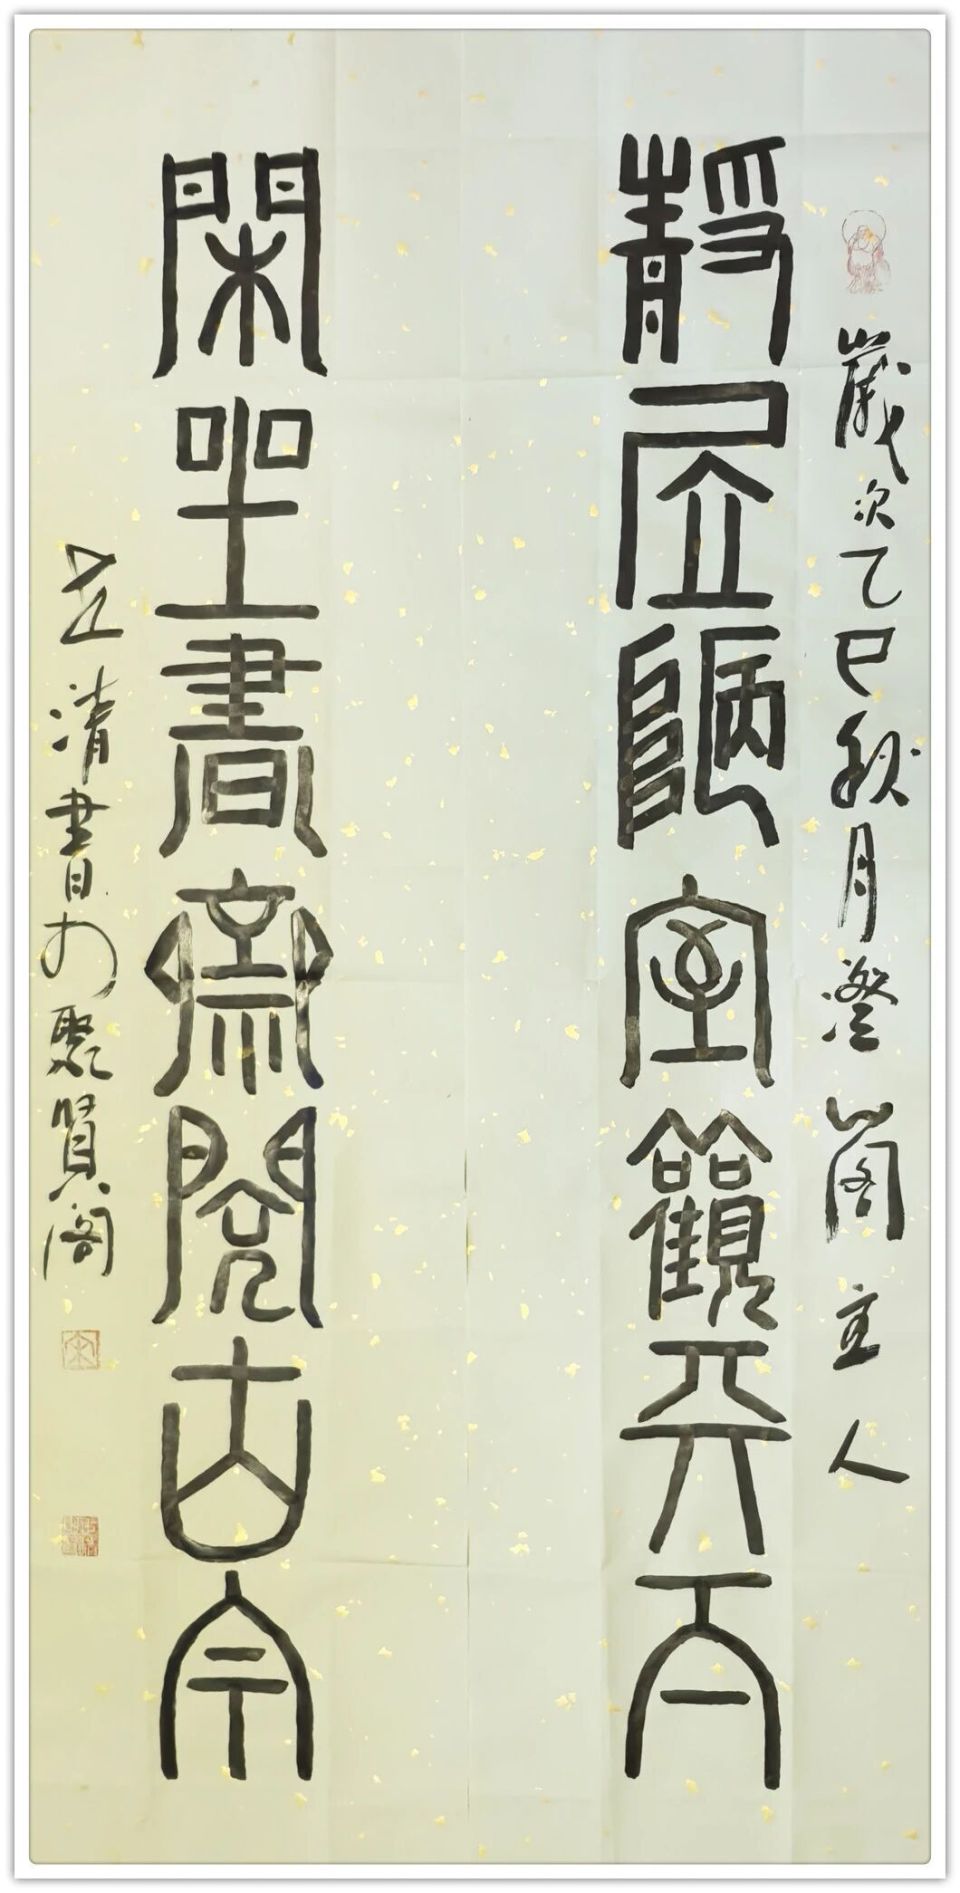 歲次乙巳秋月澄心阁主人
靜居陋室觀天下
閑坐書齋閱古今
立清書於聚賢阁